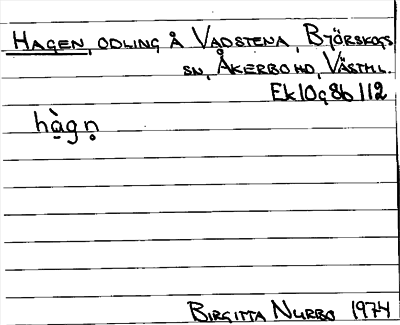 HAGEN, ODLING Å VADSTENA, BJÖRSKOGS
SN, ÅKERBO HD, VÄSTML.
Ek10g8b112
hàg̣ṇ
BIRGITTA NURBO 1974